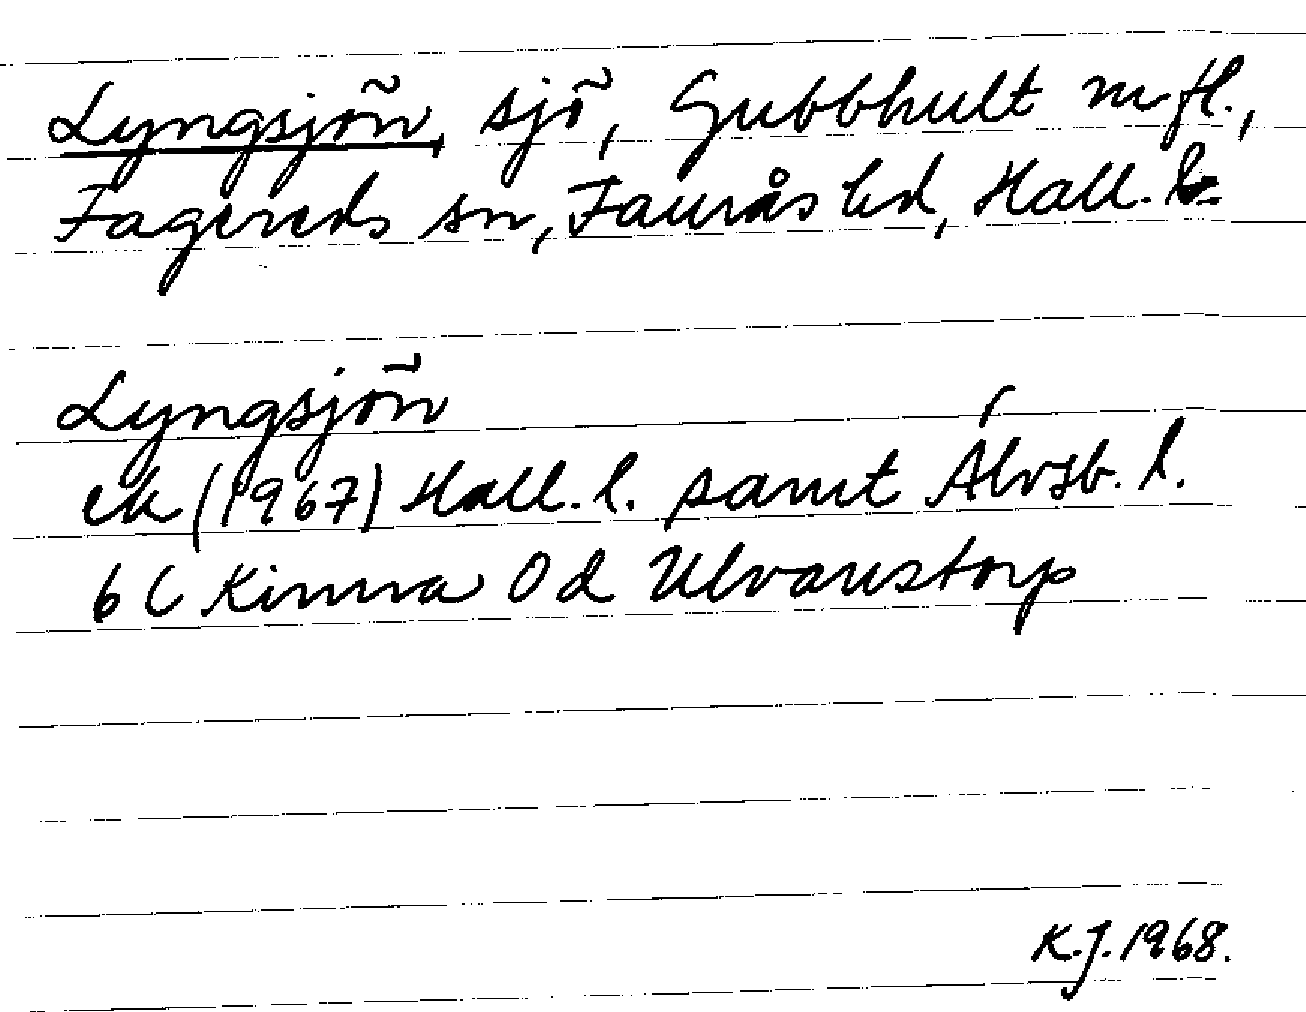 Lyngsjön, sjö, Gubbhult m fl.,
Fagereds sn, Faurås hd, Hall. l.
Lyngsjön
ek (1967) Hall. l. samt Älvsb. l.
6 C Kinna 0 d Ulvanstorp
K.J. 1968.